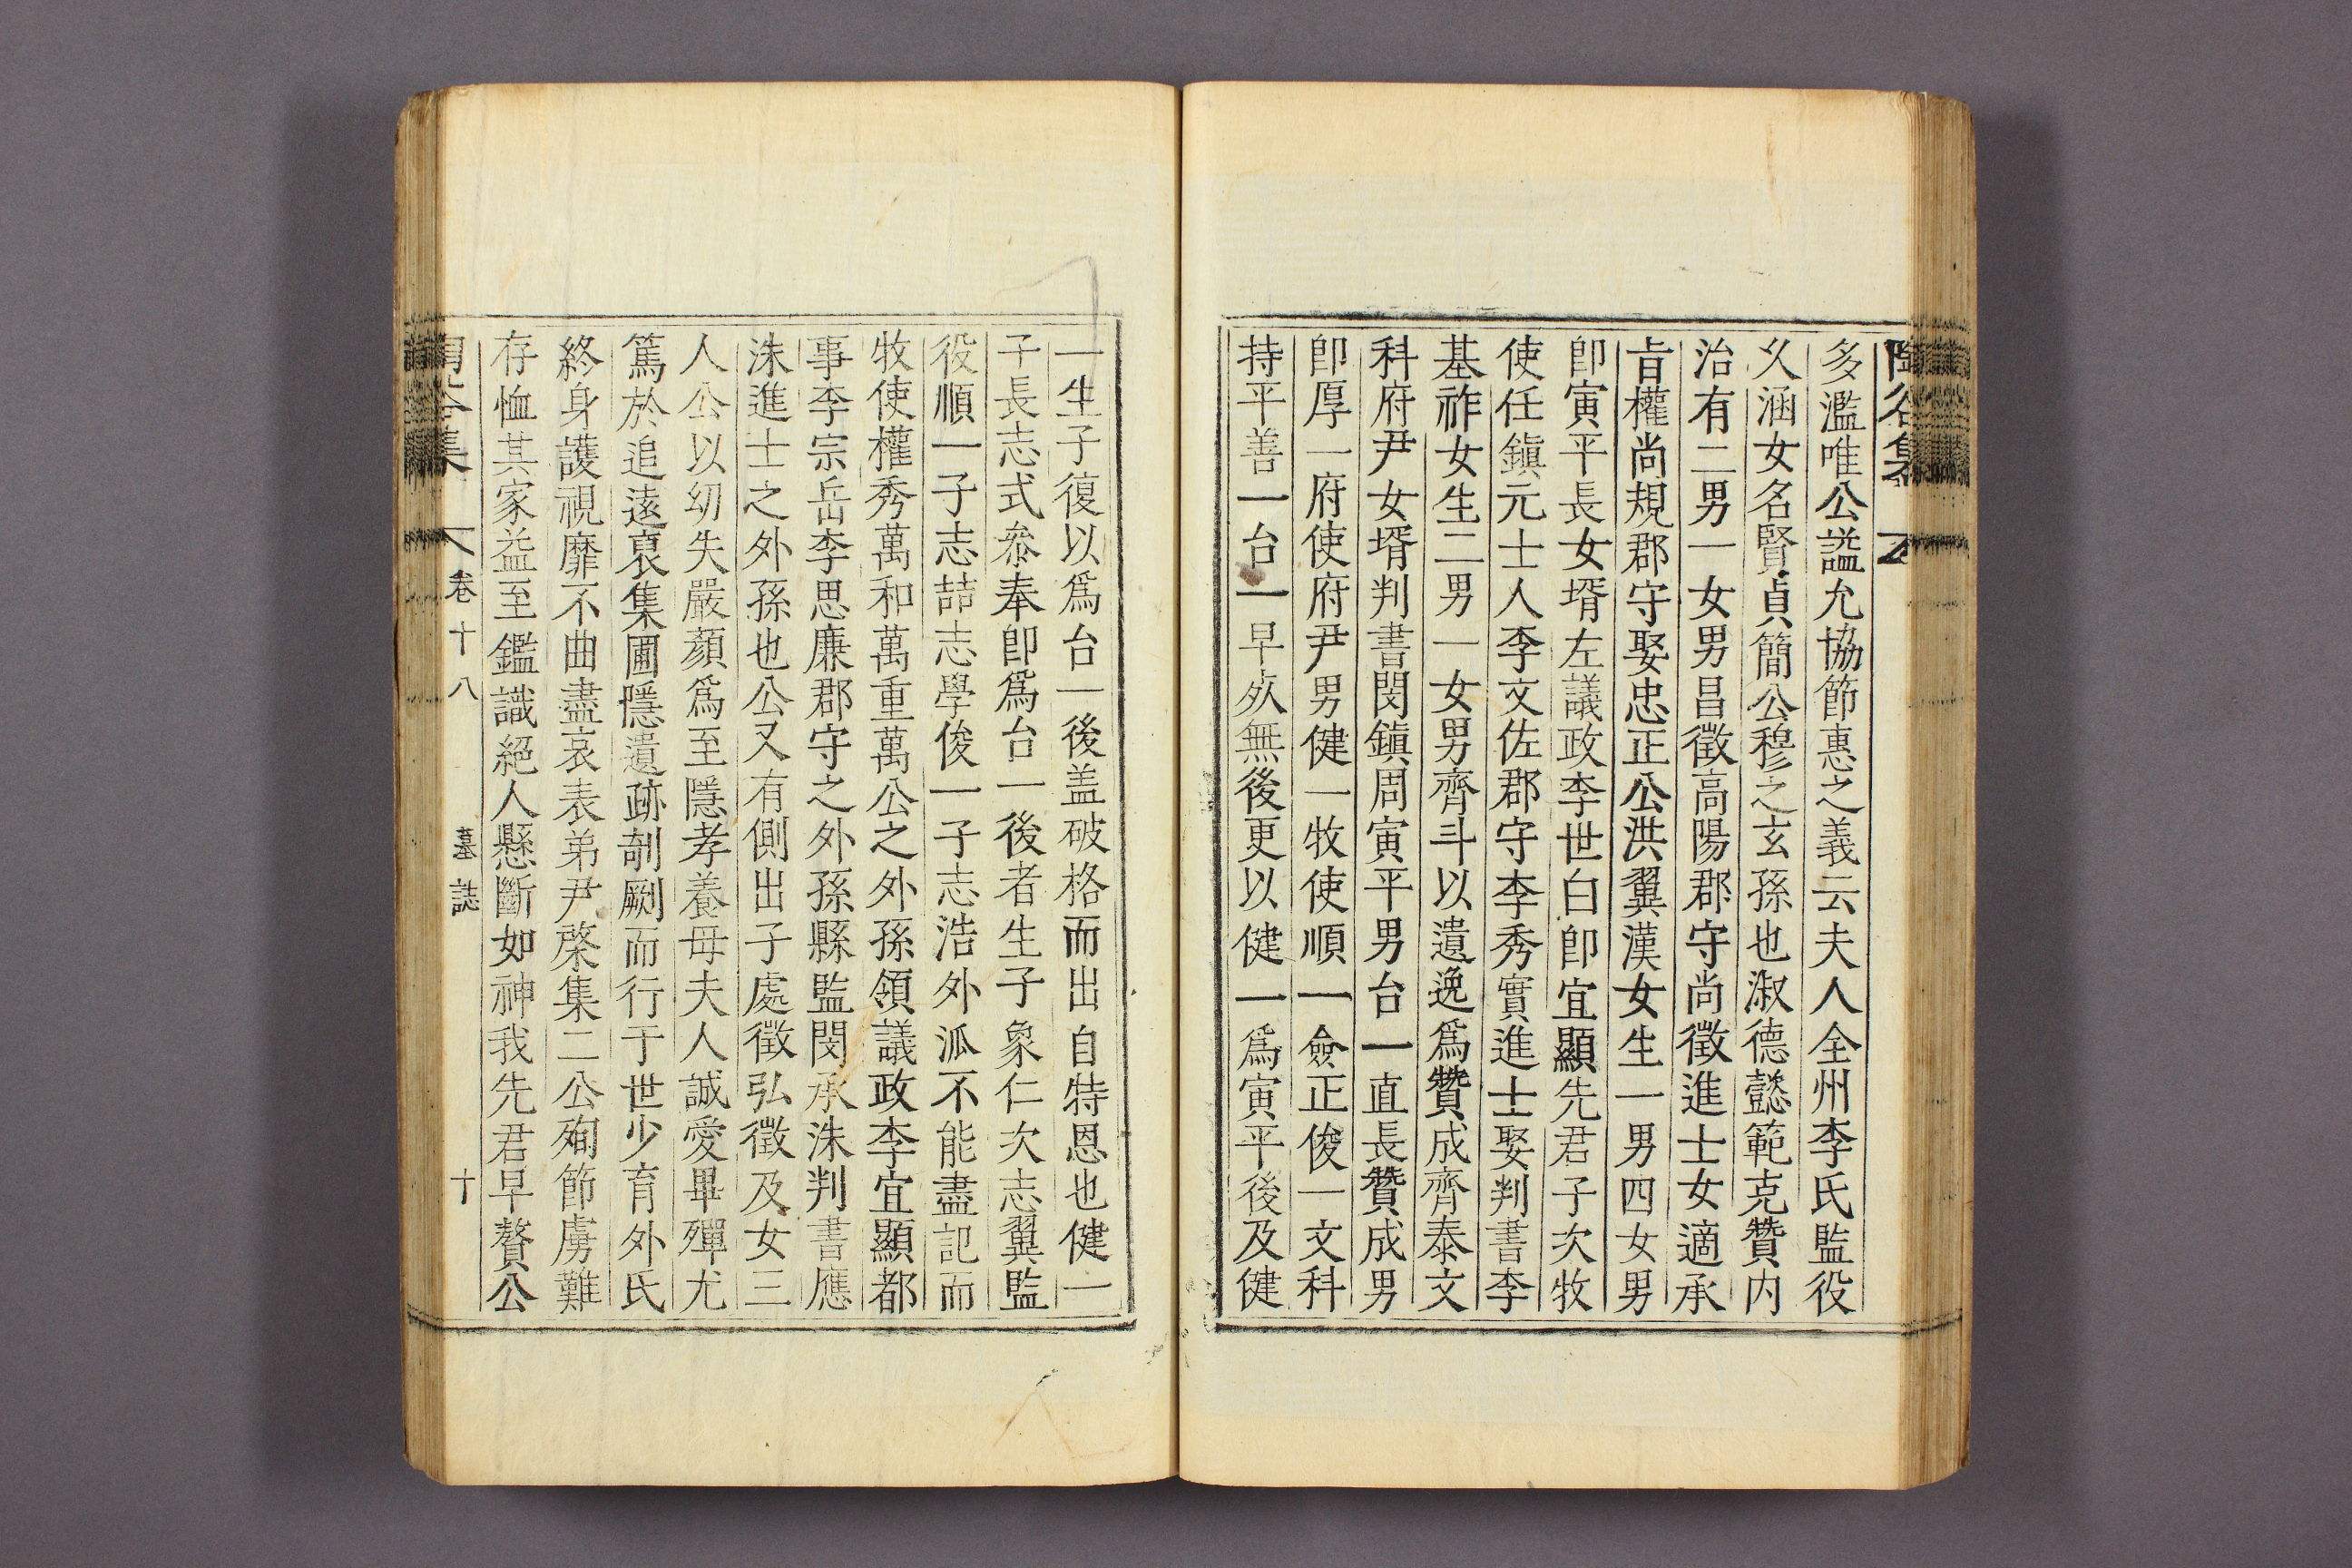 陶谷集
多濫唯公謚允協節惠之義云夫人全州李氏監役
久涵女名賢貞簡公穆之玄孫也淑德懿範克贊内
治有二男一女男昌徵高陽郡守尚徵進士女適承
旨權尚規郡守娶忠正公洪翼漢女生一男四女男
卽寅平長女壻左議政李世白卽宜顯先君子次牧
使任鎭元士人李文佐郡守李秀實進士娶判書李
基祚女生二男一女男齊斗以遺逸爲贊成齊泰文
科府尹女壻判書閔鎭周寅平男台一直長贊成男
卽厚一府使府尹男健一牧使順一僉正俊一文科
持平善一台一早夭無後更以健一爲寅平後及健
一生子復以爲台一後盖破格而出自特恩也健一
子長志式叅奉卽爲台一後者生子象仁次志翼監
役順一子志喆志學俊一子志浩外派不能盡記而
牧使權秀萬和萬重萬公之外孫領議政李宜顯都
事李宗岳李思廉郡守之外孫縣監閔承洙判書應
洙進士之外孫也公又有側出子處徵弘徵及女三
人公以幼失嚴顏爲至隱孝養母夫人誠愛畢殫尤
篤於追遠裒集圃隱遺跡剞劂而行于世少育外氏
終身護視靡不曲盡哀表弟尹棨集二公殉節虜難
存恤其家益至鑑識絕人懸斷如神我先君早贅公
陶谷集 卷十八 墓誌 十